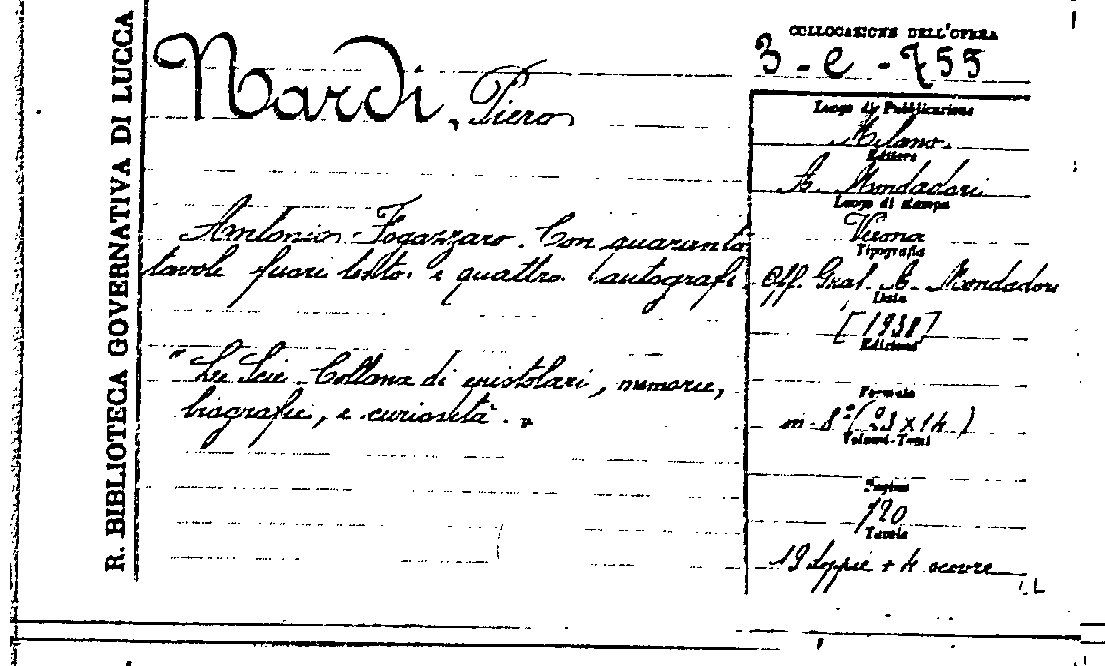 R. BIBLIOTECA GOVERNATIVA DI LUCCA
Nardi, Piero
Antonio Fogazzaro. Con quaranta
tavole fuori testo e quattro autografi.
"Le Scie. Collana di epistolari, memorie,
biografie, e curiosità."
COLLOCAZIONE DELL'OPERA
3-e-755
Luogo di Pubblicazione
Milano.
Editore
A. Mondadori
Luogo di stampa
Verona
Tipografia
Off. Graf. A. Mondadori
Data
[1938]
Edizione
Formato
in 8° (23 x 14)
Volumi-Tomi
Pagine
720
Tavole
19 doppie + 4